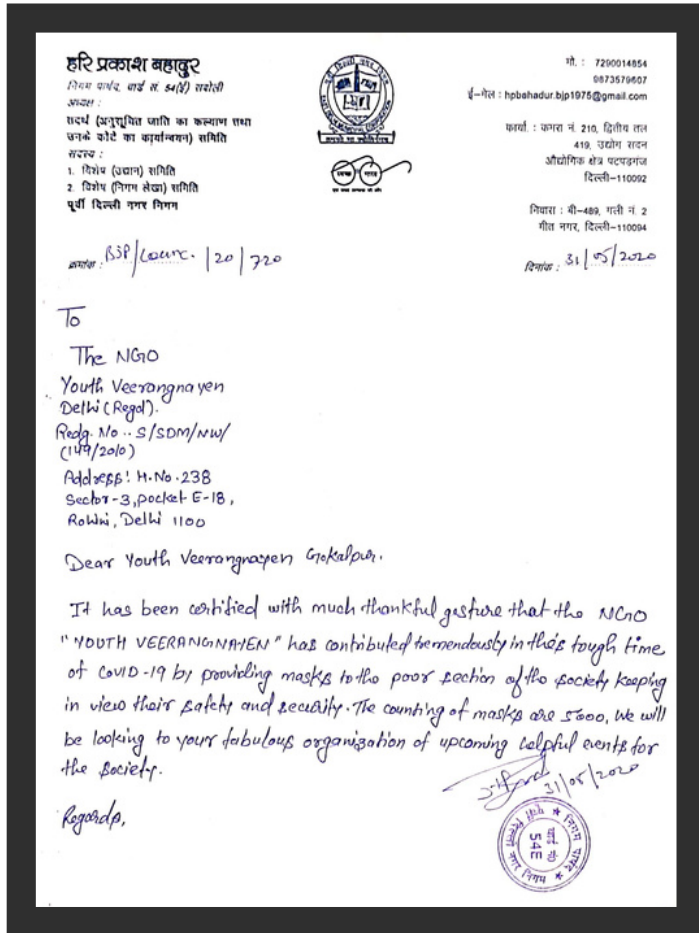 हरि प्रकाश बहादुर
निगम पार्षद, वार्ड सं. 54(ई) सबोली
अध्यक्ष :
तदर्थ (अनुसूचित जाति का कल्याण तथा
उनके कोटे का कार्यान्वयन) समिति
सदस्य :
1. विशेष (उद्यान) समिति
2. विशेष (निगम लेखा) समिति
पूर्वी दिल्ली नगर निगम
मो. : 7290014854
9873579607
ई-मेल : hpbahadur.bjp1975@gmail.com
कार्या. : कमरा नं. 210, द्वितीय तल
419, उद्योग सदन
औद्योगिक क्षेत्र पटपड़गंज
दिल्ली-110092
निवास : बी-489, गली नं. 2
मीत नगर, दिल्ली-110094
स्वच्छ भारत
एक कदम स्वच्छता की ओर
क्रमांक : BJP/Counc. /20/720
दिनांक : 31/05/2020
To
The NGO
Youth Veerangnayen
Delhi (Regd).
Redg. No .. S/SDM/NW/
(149/2010)
Address: H.No.238
Sector-3, pocket E-18,
Rohini, Delhi 1100
Dear Youth Veerangnayen Gokalpur.
It has been certified with much thankful gesture that the NGO
"YOUTH VEERANGNAYEN" has contributed tremendously in this tough time
of COVID-19 by providing masks to the poor section of the society keeping
in view their safety and security. The counting of masks are 5000, We will
be looking to your fabulous organization of upcoming helpful events for
the society.
31/05/2020
Regards,
निगम पार्षद
वार्ड नं०
54E
पूर्वी दिल्ली नगर निगम